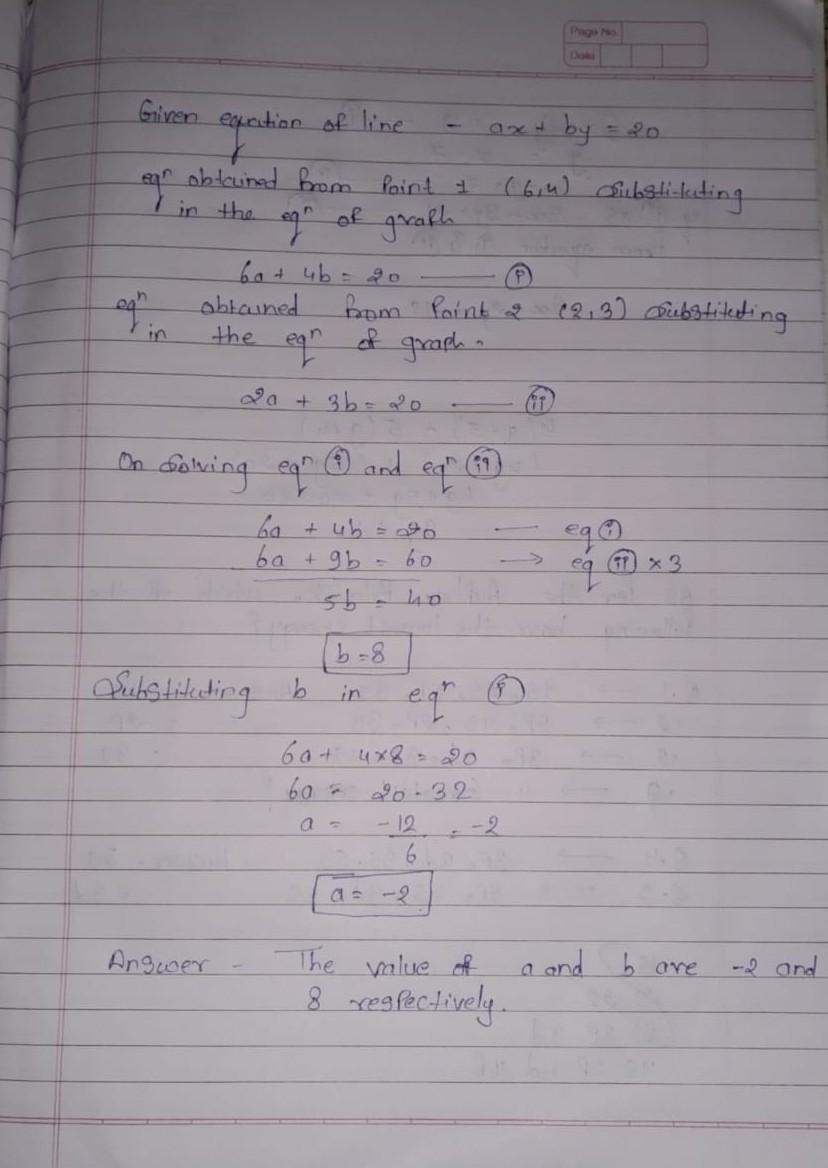 Page No.
Date
Given equation of line - ax + by = 20
eqn obtained from Point 1 (6,4) Substituting
in the eqn of graph
6a + 4b = 20 — (i)
eqn obtained from Point 2 (2,3) Substituting
in the eqn of graph.
2a + 3b = 20 — (ii)
On Solving eqn (i) and eqn (ii)
6a + 4b = 20 — eq (i)
6a + 9b = 60 → eq (ii) × 3
5b = 40
b = 8
Substituting b in eqn (i)
6a + 4×8 = 20
6a = 20 - 32
a = -12/6 = -2
a = -2
Answer - The value of a and b are -2 and
8 respectively.